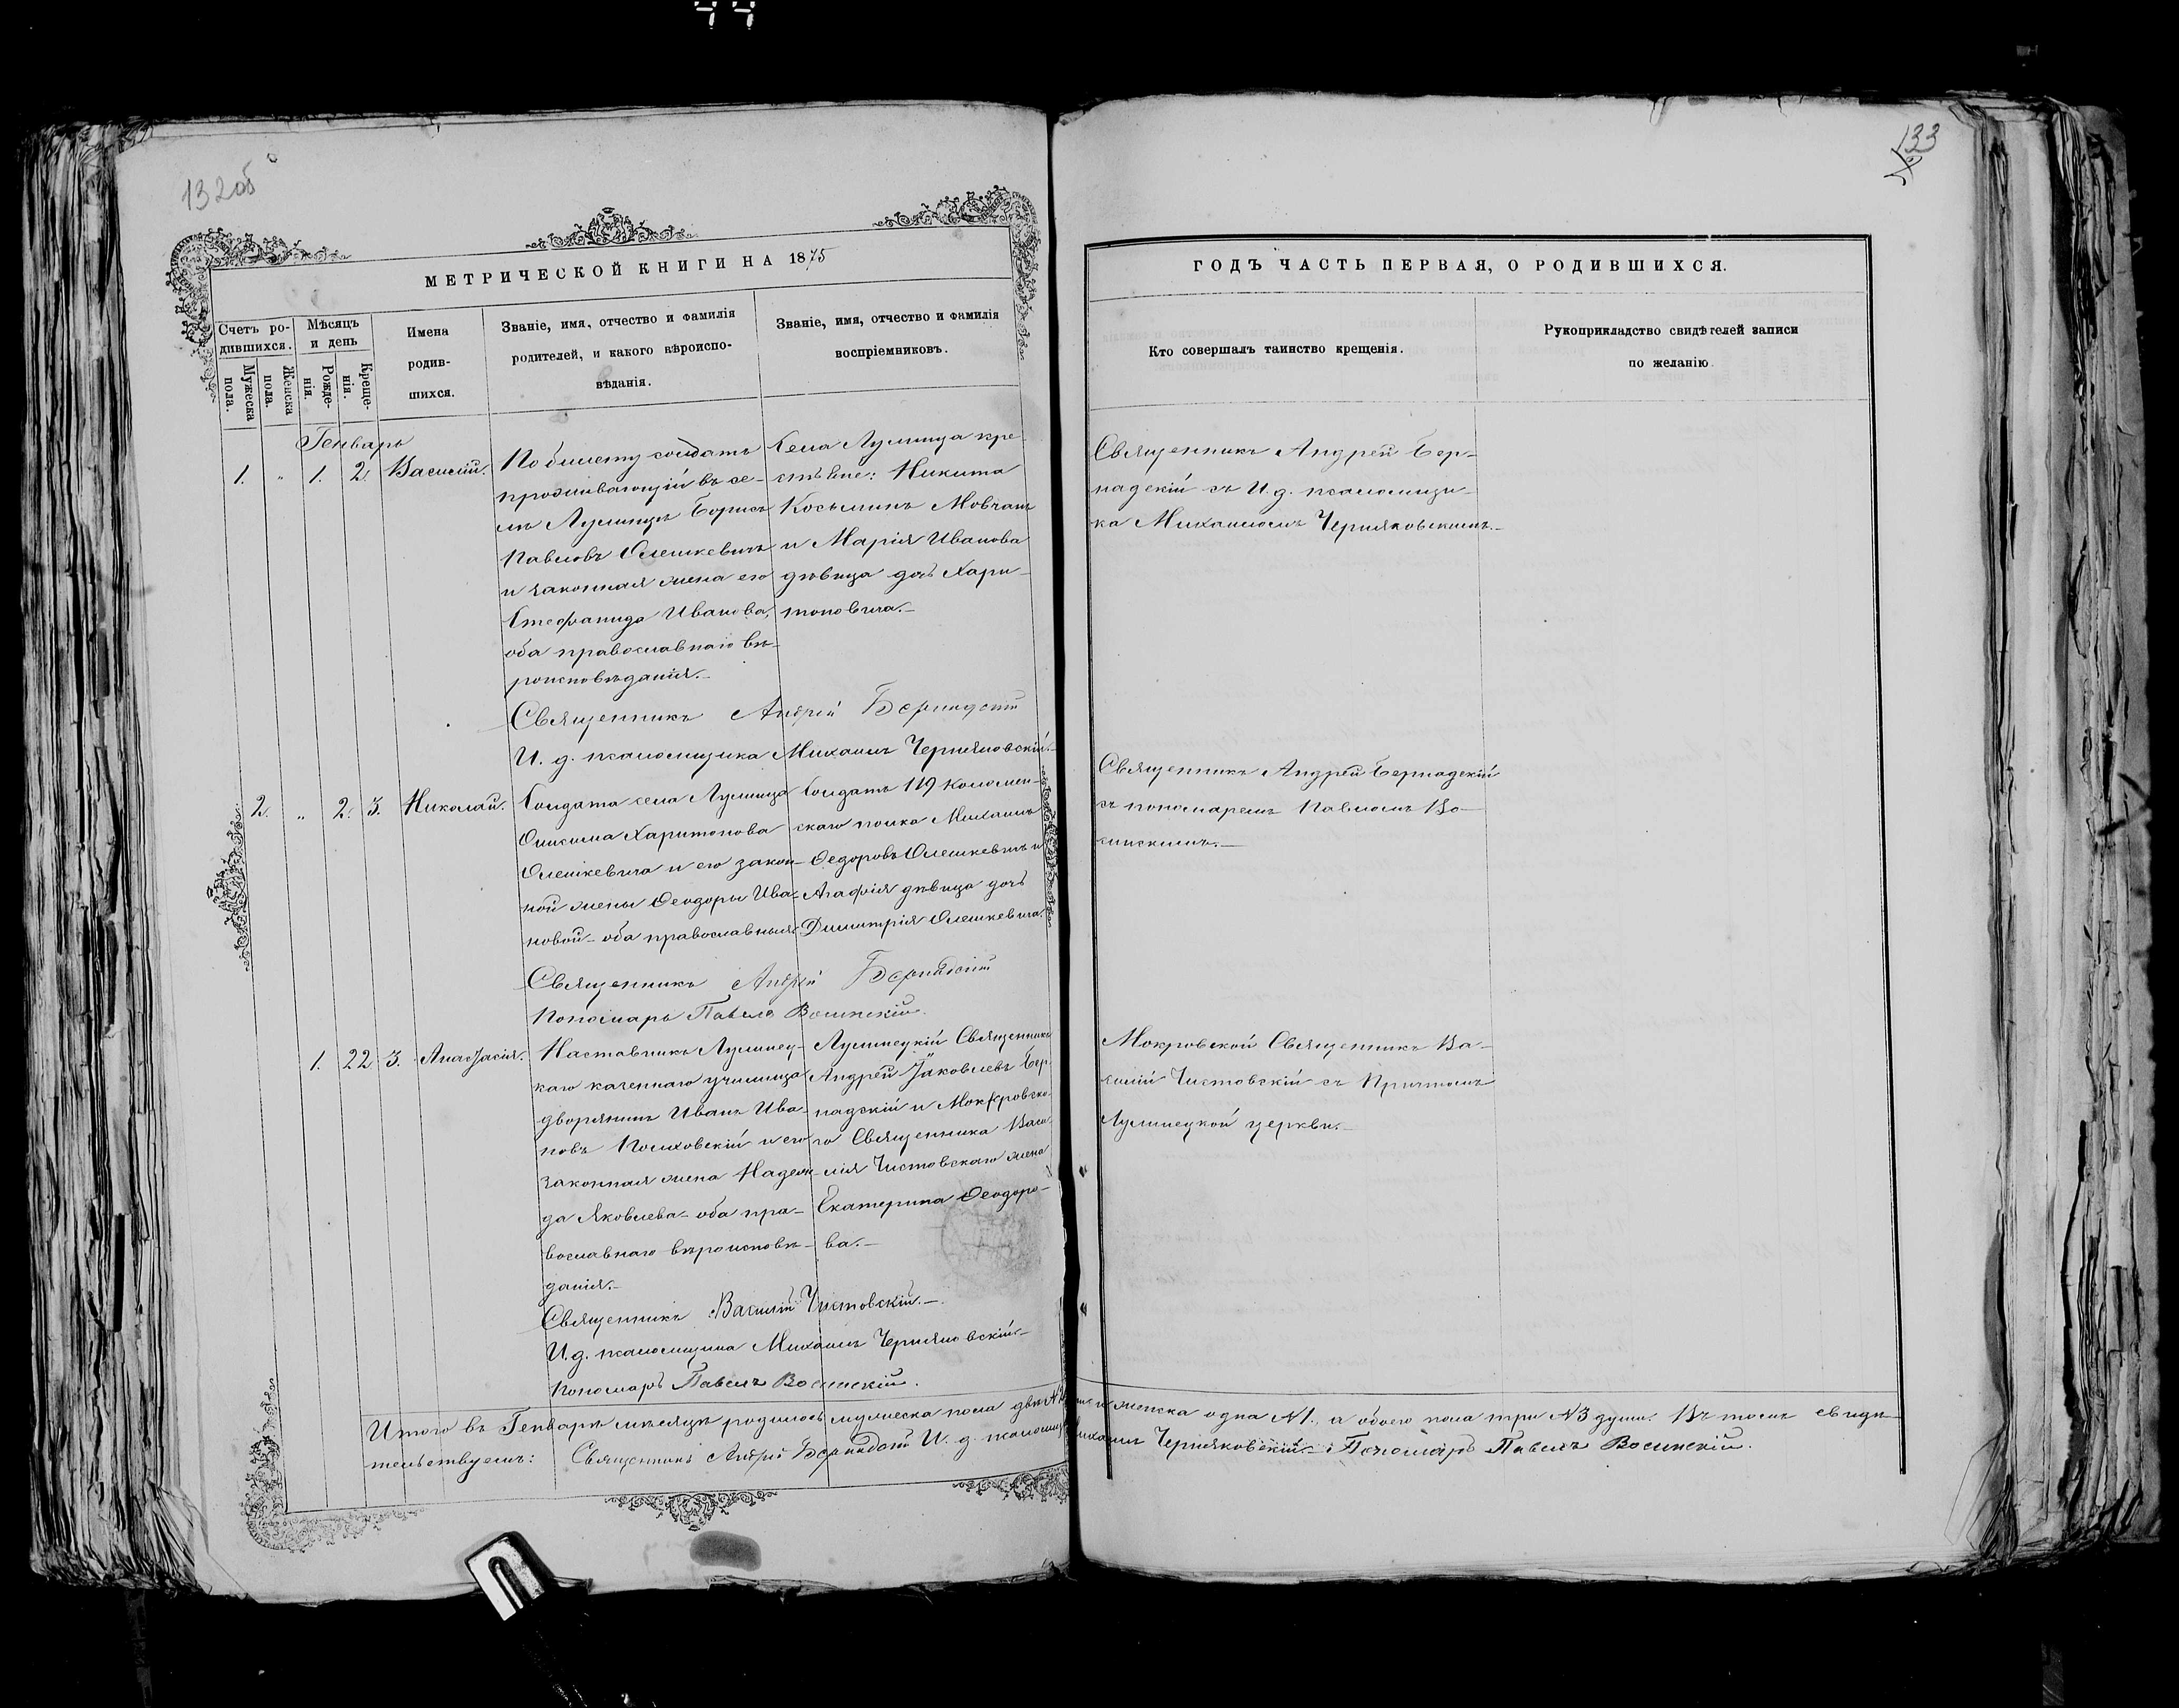 44
132об
133
МЕТРИЧЕСКОЙ КНИГИ НА 1875
ГОДЪ ЧАСТЬ ПЕРВАЯ, О РОДИВШИХСЯ.
Счетъ ро-
дившихся.
Мужеска
пола.
Женска
пола.
Мѣсяцъ
и день
Рожде-
нія.
Креще-
нія.
Имена
родив-
шихся.
Званіе, имя, отчество и фамилія
родителей, и какого вѣроиспо-
вѣданія.
Званіе, имя, отчество и фамилія
воспріемниковъ.
Кто совершалъ таинство крещенія.
Рукоприкладство свидѣтелей записи
по желанію.
Генварь
1. " 1. 2. Василій.
По билету солдатъ
проживающій въ се-
лѣ Лулинцѣ Борисъ
Павловъ Олешкевичъ
и законная жена его
Стефанида Иванова,
оба православнаго вѣ-
роисповѣданія.
Села Лулинца кре-
стьяне: Никита
Косьминъ Мовчанъ
и Марія Иванова
дѣвица дочь Хари-
тоновича.
Священникъ Андрей Бер-
надскій съ И. д. псаломщи-
ка Михаиломъ Черняковскимъ.
Священникъ Андрей Бернадскій
И. д. псаломщика Михаилъ Черняковскій.
2. " 2. 3. Николай.
Солдата села Лулинца
Онисима Харитонова
Олешкевича и его закон-
ной жены Феодоры Ива-
новой - оба православныя
Солдатъ 119 Коломен-
скаго полка Михаилъ
Федоровъ Олешкевичъ и
Агафія дѣвица дочь
Димитрія Олешкевича.
Священникъ Андрей Бернадскій
съ пономаремъ Павломъ Во-
синскимъ.
Священникъ Андрей Бернадскій
Пономарь Павелъ Восинскій.
1. 22 3. Анастасія.
Наставникъ Лулинец-
каго казеннаго училища
дворянинъ Иванъ Ива-
новъ Полховскій и его
законная жена Надеж-
да Яковлева - оба пра-
вославнаго вѣроисповѣ-
данія.
Лулинецкій Священникъ
Андрей Іаковлевъ Бер-
надскій и Мокровско-
го Священника Васи-
лія Чистовскаго жена
Екатерина Феодоро-
ва.
Мокровской Священникъ Ва-
силій Чистовскій съ Причтомъ
Лулинецкой церкви.
Священникъ Василій Чистовскій.
И. д. псаломщика Михаилъ Черняковскій.
Пономарь Павелъ Восинскій.
Итого въ Генварѣ мѣсяцѣ родилось мужеска пола два №2, женска одна №1, а обоего пола три №3 души. Въ томъ свидѣ-
тельствуемъ: Священникъ Андрей Бернадскій И. д. псаломщ. Михаилъ Черняковскій. Пономарь Павелъ Восинскій.